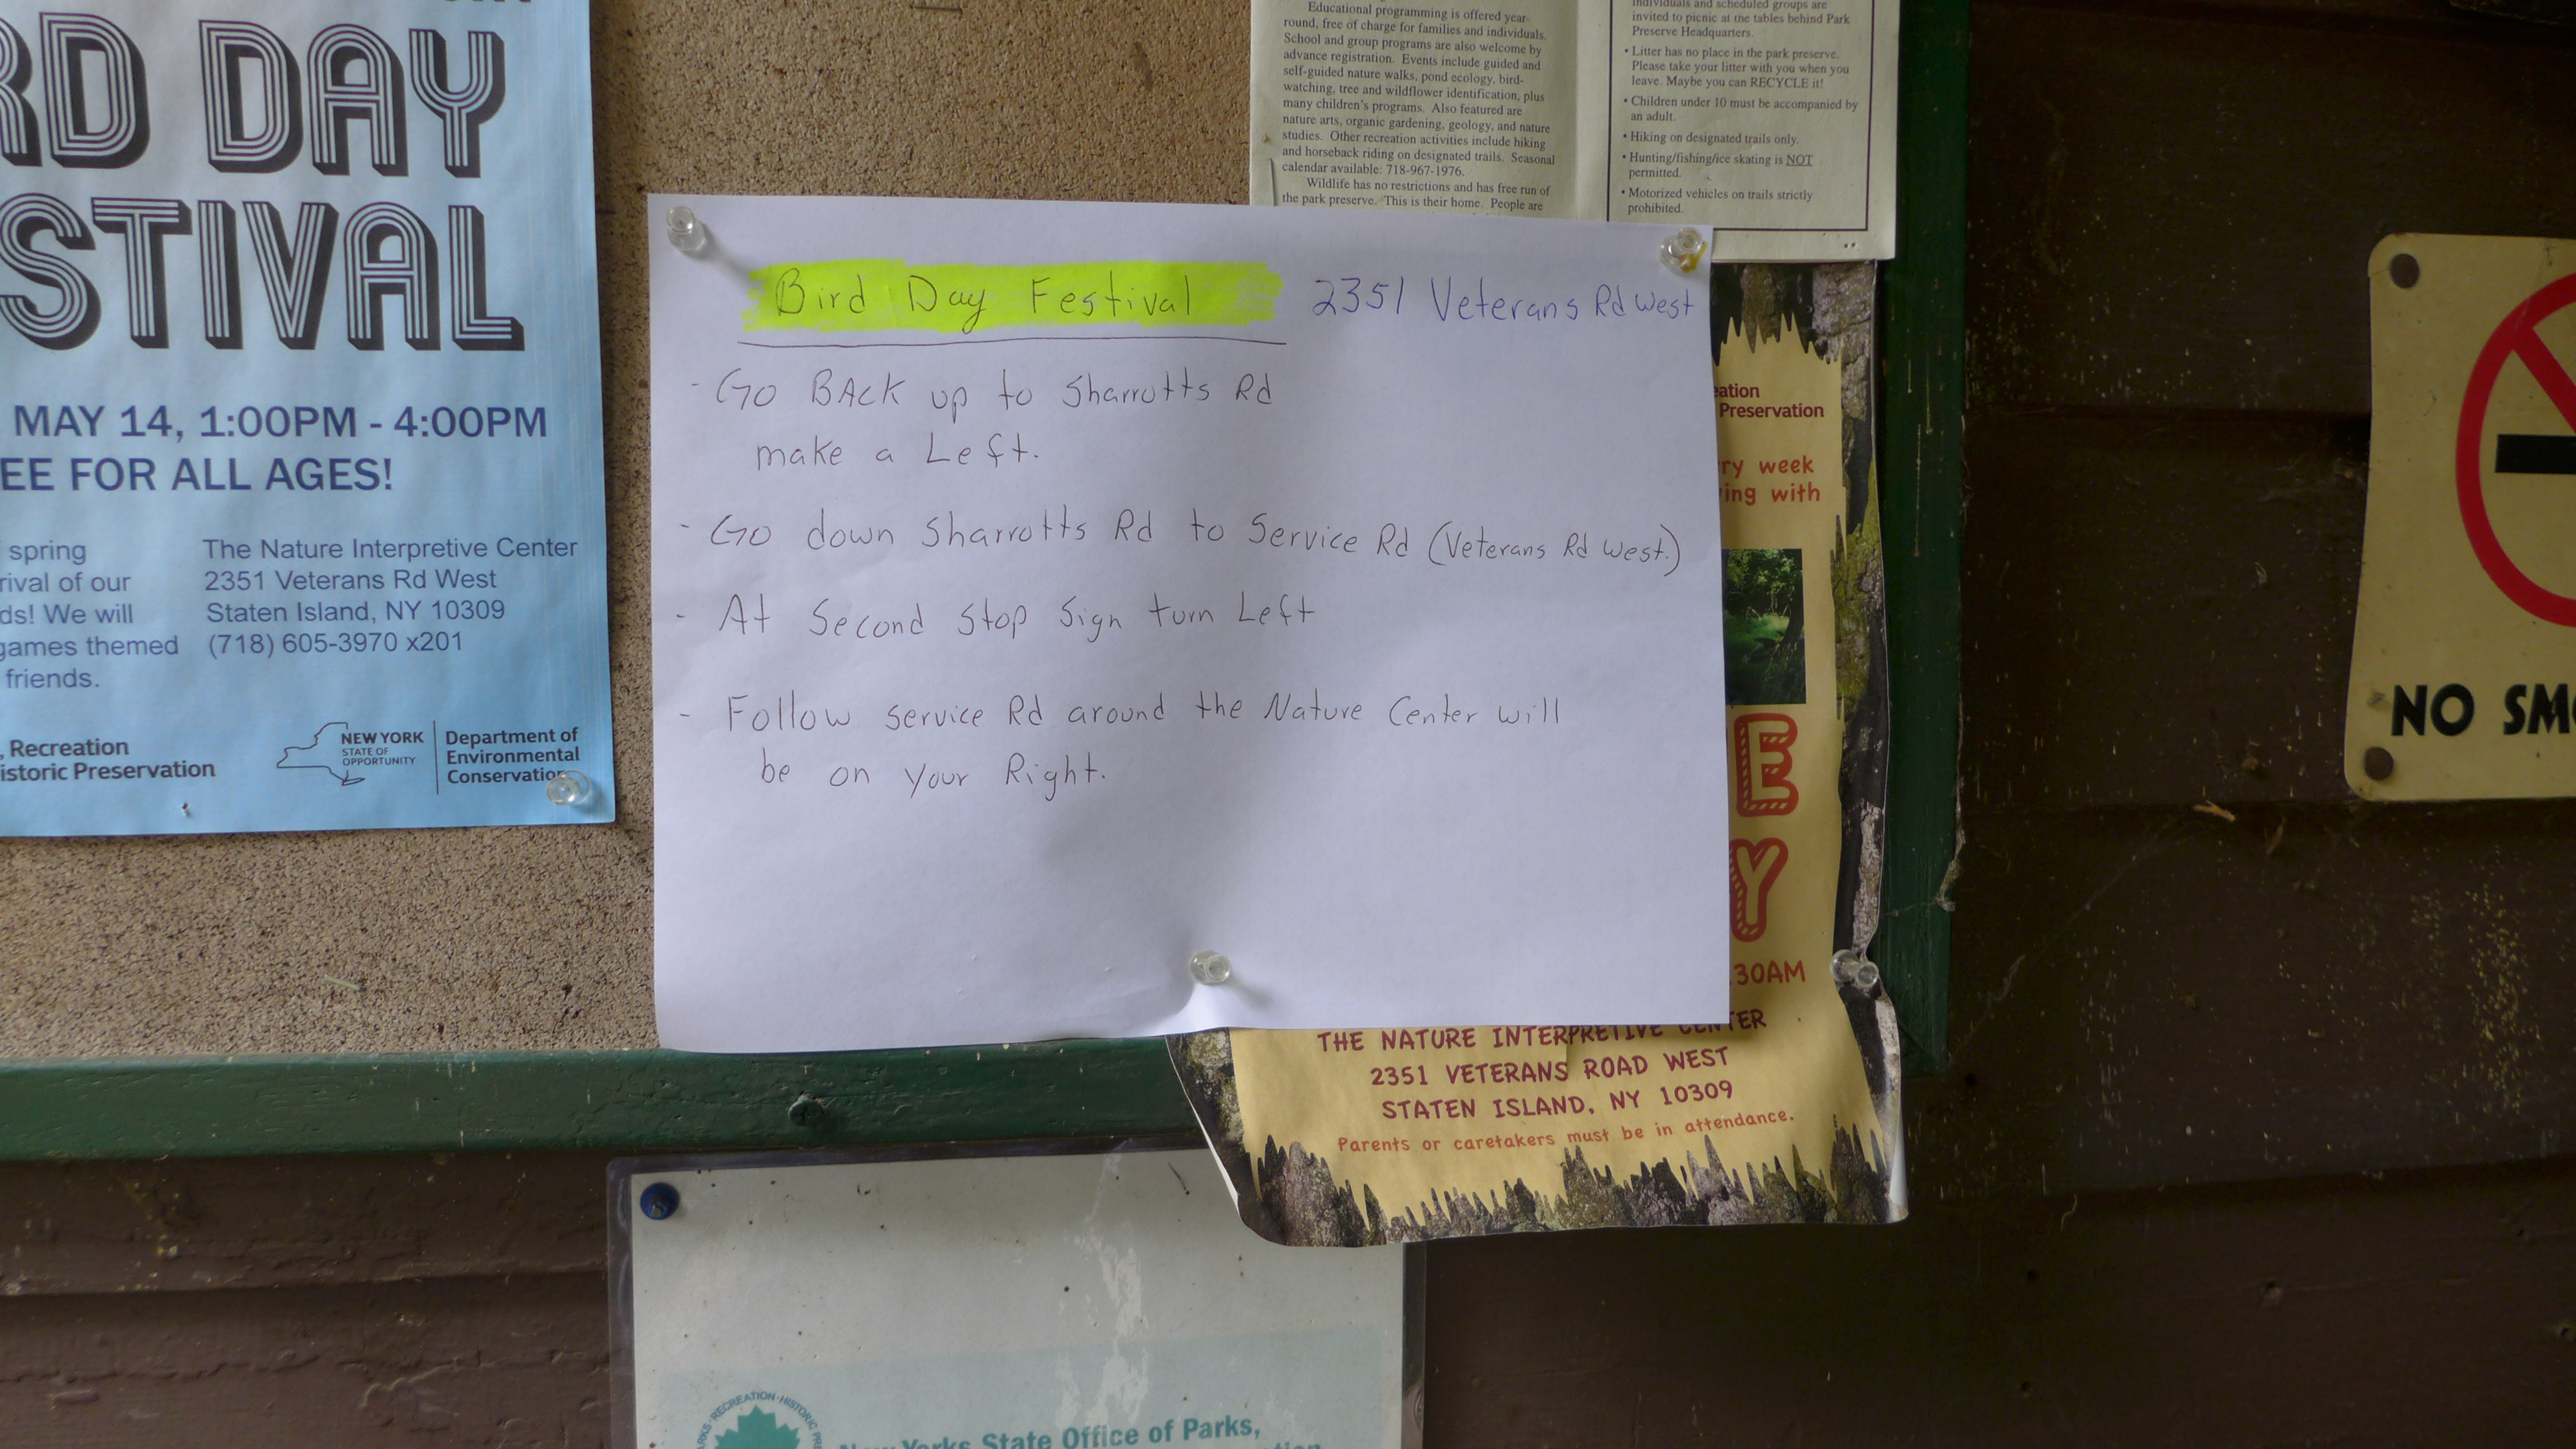 RD DAY
STIVAL
MAY 14, 1:00PM - 4:00PM
EE FOR ALL AGES!
spring
rival of our
ds! We will
games themed
friends.
The Nature Interpretive Center
2351 Veterans Rd West
Staten Island, NY 10309
(718) 605-3970 x201
, Recreation
istoric Preservation
NEW YORK
STATE OF
OPPORTUNITY
Department of
Environmental
Conservation
Educational programming is offered year-
round, free of charge for families and individuals.
School and group programs are also welcome by
advance registration. Events include guided and
self-guided nature walks, pond ecology, bird-
watching, tree and wildflower identification, plus
many children's programs. Also featured are
nature arts, organic gardening, geology, and nature
studies. Other recreation activities include hiking
and horseback riding on designated trails. Seasonal
calendar available: 718-967-1976.
Wildlife has no restrictions and has free run of
the park preserve. This is their home. People are
individuals and scheduled groups are
invited to picnic at the tables behind Park
Preserve Headquarters.
• Litter has no place in the park preserve.
Please take your litter with you when you
leave. Maybe you can RECYCLE it!
• Children under 10 must be accompanied by
an adult.
• Hiking on designated trails only.
• Hunting/fishing/ice skating is NOT
permitted.
• Motorized vehicles on trails strictly
prohibited.
Bird Day Festival 2351 Veterans Rd West
- Go BAck up to Sharrotts Rd
make a Left.
- Go down Sharrotts Rd to Service Rd (Veterans Rd West.)
- At Second Stop Sign turn Left
- Follow Service Rd around the Nature Center will
be on your Right.
eation
Preservation
ry week
ing with
E
Y
30AM
THE NATURE INTERPRETIVE CENTER
2351 VETERANS ROAD WEST
STATEN ISLAND, NY 10309
Parents or caretakers must be in attendance.
NO SM
RECREATION • HISTORIC
New Yorks State Office of Parks,